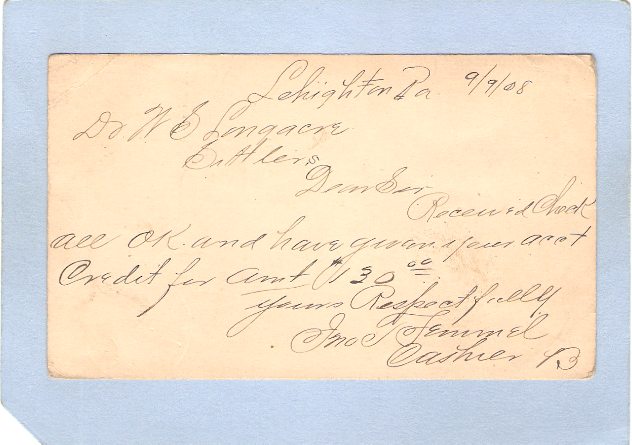 Lehighton Pa 9/9/08
Dr W E Longacre
Cutlers
Dear Sir
Received Check
all OK and have given your acct
Credit for amt $130.00
yours Respectfully
Jno T Semmel
Cashier B